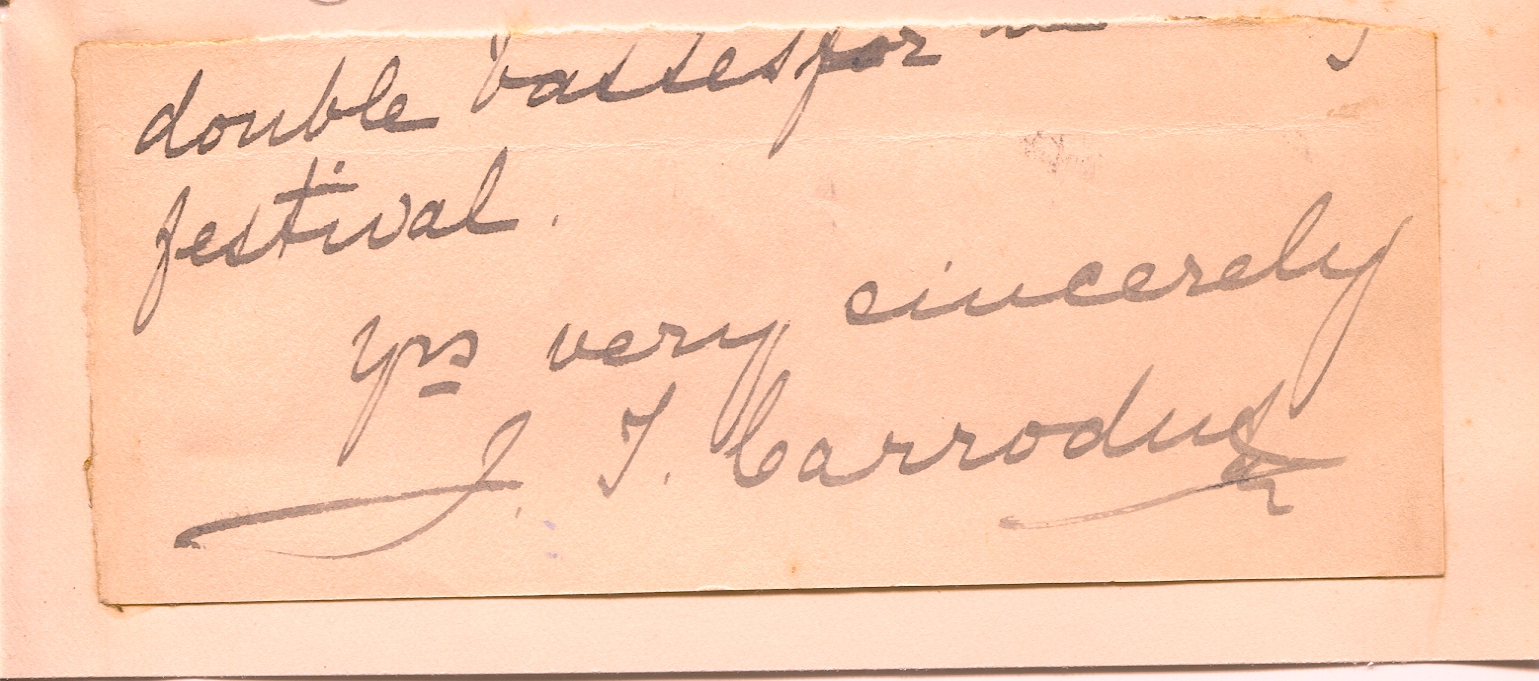 double basses for
festival.
yrs very sincerely
J. T. Carrodus